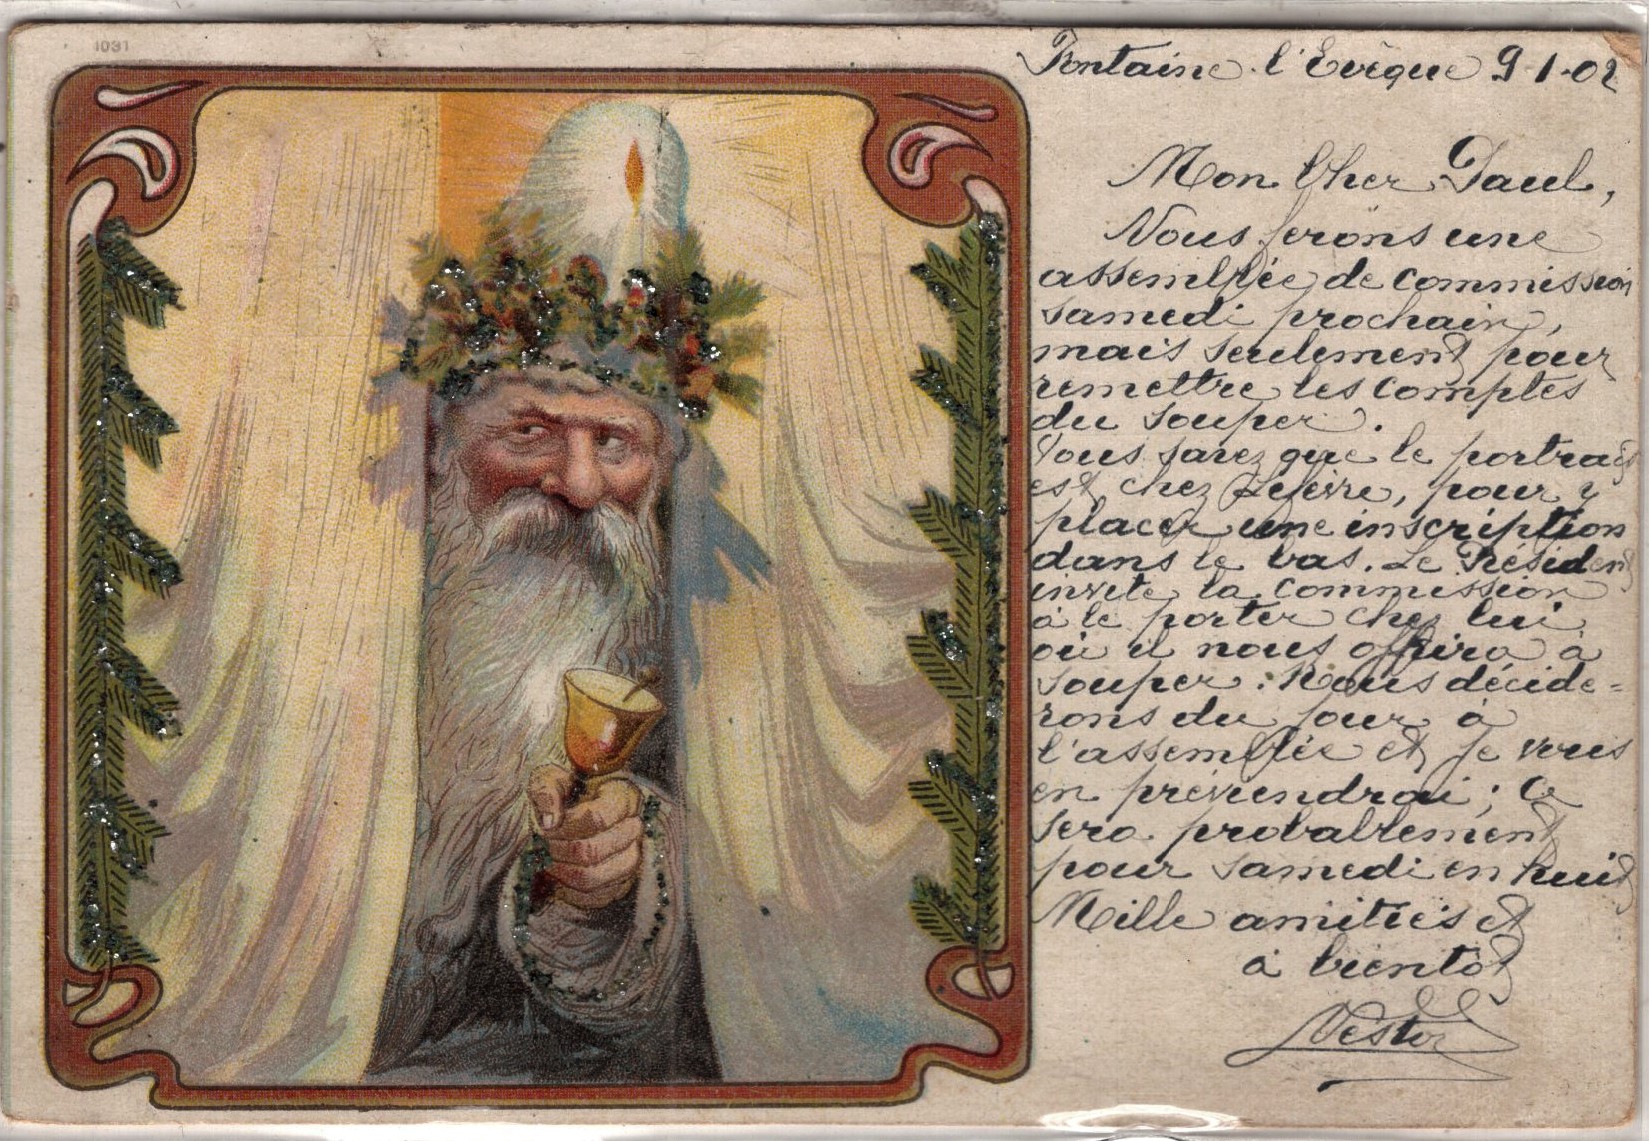 1031
Fontaine-l'Evêque 9-1-02
Mon Cher Paul,
Nous ferons une
assemblée de commission
samedi prochain,
mais seulement pour
remettre les comptes
du souper.
Vous savez que le portrait
est chez Lefèvre, pour y
placer une inscription
dans le bas. Le Président
invite la commission
à le porter chez lui
où il nous offrira à
souper. Nous décide=
rons du jour à
l'assemblée et je vous
en préviendrai ; Ce
sera probablement
pour samedi en huit
Mille amitiés et
à bientôt
Nestor